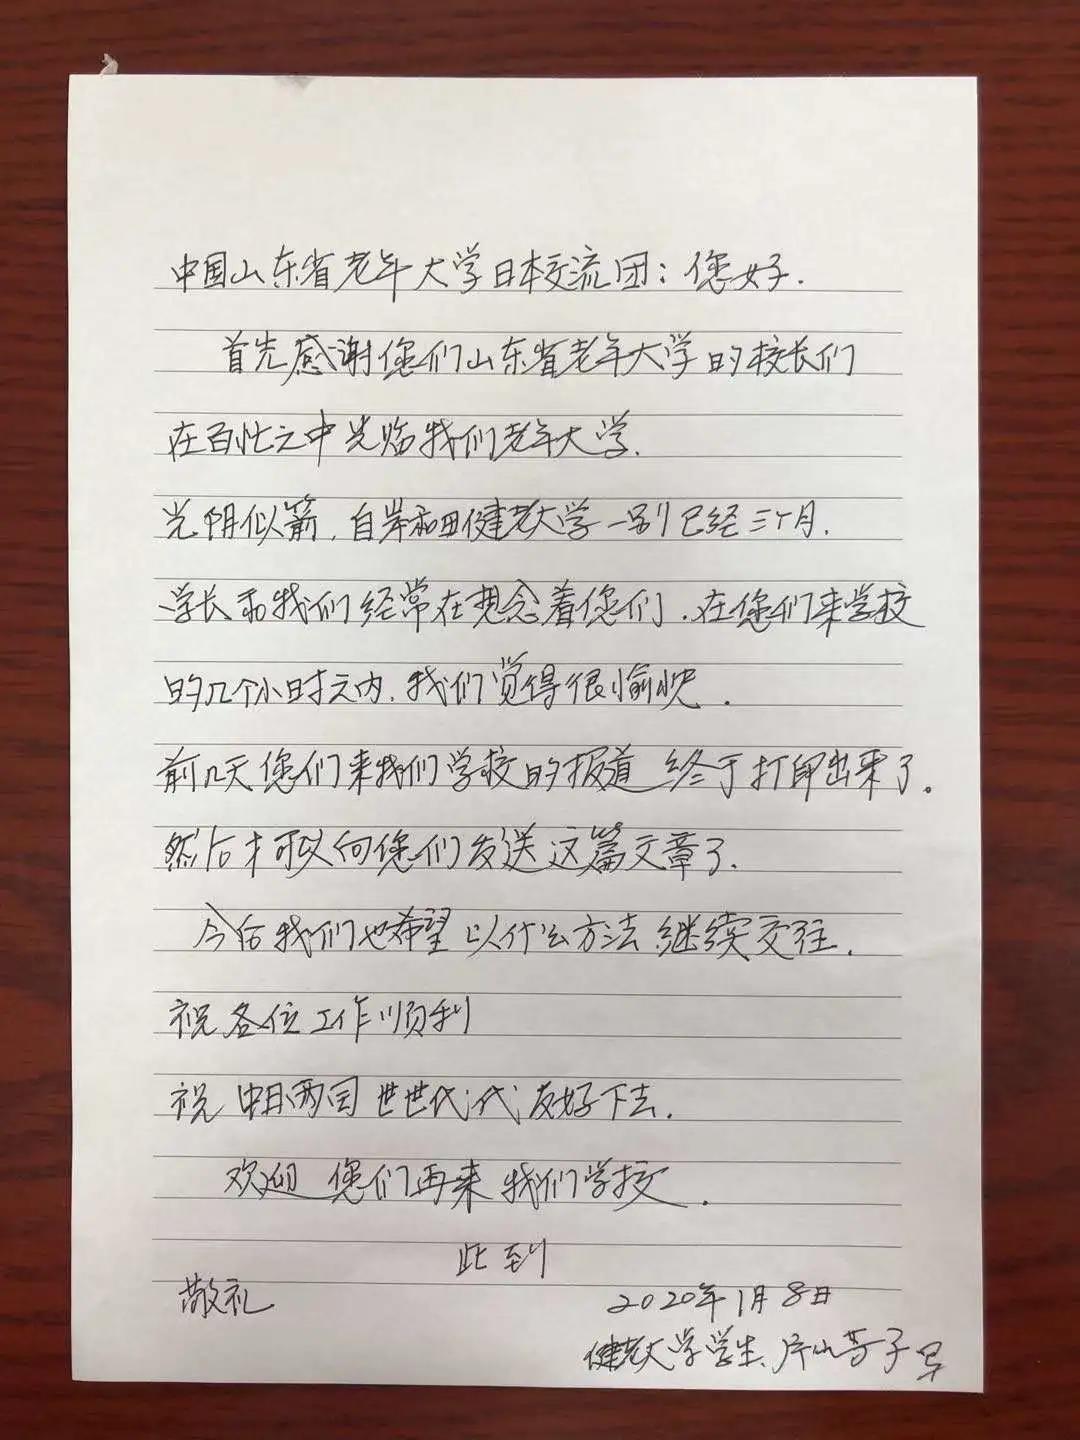 中国山东省老年大学日本交流团：您好.
首先感谢您们山东省老年大学的校长们
在百忙之中光临我们老年大学.
光阴似箭,自岸和田健老大学一别已经三个月.
学长和我们经常在想念着您们,在您们来学校
的几个小时之内,我们觉得很愉快.
前几天您们来我们学校的报道终于打印出来了。
然后才可以向您们发送这篇文章了.
今后我们也希望以什么方法继续交往.
祝各位工作顺利
祝中日两国世世代代友好下去.
欢迎您们再来我们学校.
此到
敬礼
2020年1月8日
健老大学学生、片山芳子写